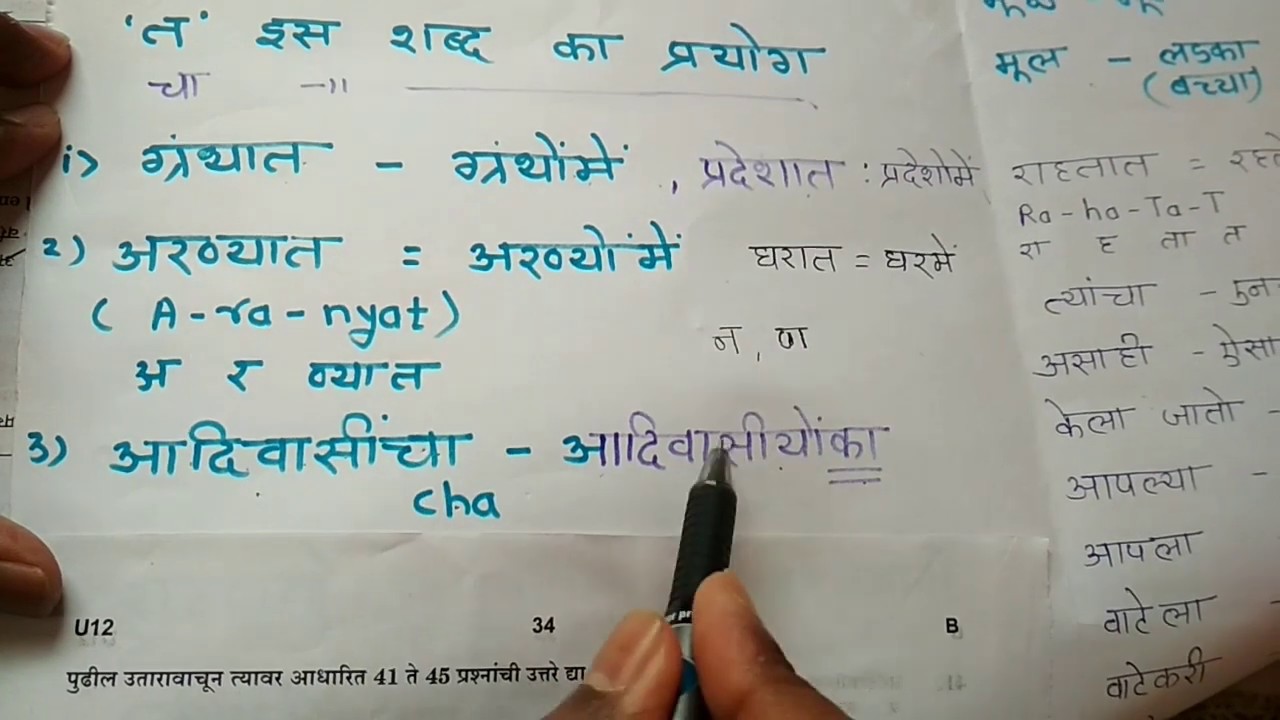 'त' इस शब्द का प्रयोग
चा —॥
i> ग्रंथात - ग्रंथोंमें , प्रदेशात : प्रदेशोमें
2) अरण्यात = अरण्योंमें घरात = घरमें
(A-ra-nyat)
न, ण
अ र ण्यात
3) आदिवासींचा - आदिवासीयोंका
cha
मूल - लडका
(बच्चा)
राहतात =
Ra-ha-Ta-T
रा ह ता त
त्यांचा -
असाही - ऐसा
केला जातो -
आपल्या -
आपला
वाटेला
वाटेकरी
U12 34 B
पुढील उतारावाचून त्यावर आधारित 41 ते 45 प्रश्नांची उत्तरे द्या